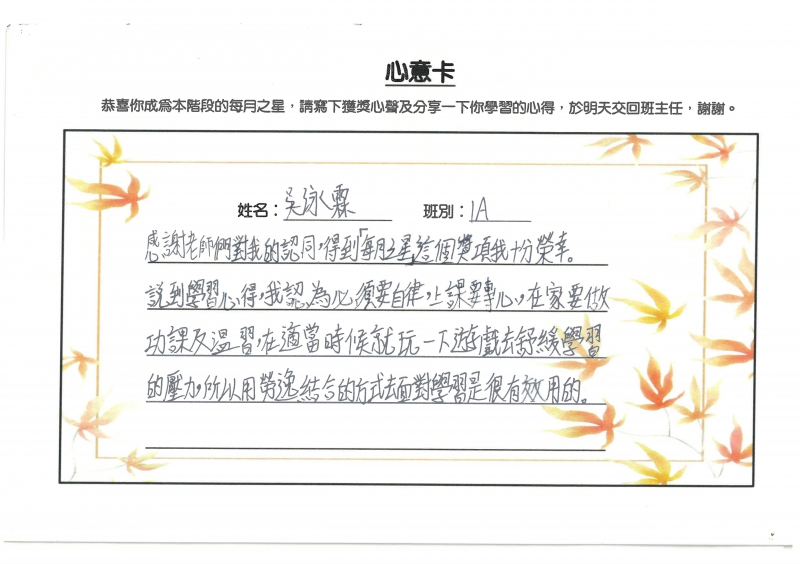 心意卡
恭喜你成為本階段的每月之星，請寫下獲獎心聲及分享一下你學習的心得，於明天交回班主任，謝謝。
姓名：吳泳霖 班別：1A
感謝老師們對我的認同，得到「每月之星」這個獎項我十分榮幸。
說到學習心得，我認為必須要自律，上課要專心，在家要做
功課及溫習，在適當時候就玩一下遊戲去舒緩學習
的壓力，所以用勞逸結合的方式去面對學習是很有效用的。